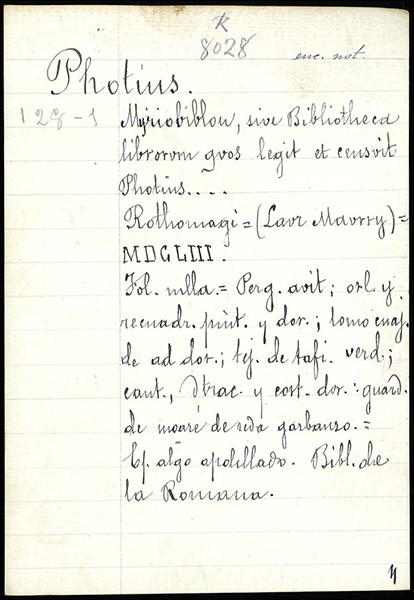 R
8028
enc. not.
Photius.
128-1
Myriobiblon, sive Bibliotheca
librorum quos legit et censvit
Photius....
Rothomagi = (Lavr Mavrry) =
MDCLIII.
Fol. mlla. = Perg. avit; orl. y
recuadr. pint. y dor.; lomo cuaj.
de ad. dor.; tej. de tafi. verd.;
cant., dtrac. y cost. dor.: guard.
de moaré de seda garbanzo. =
Ej. algo apolillado. Bibl. de
la Romana.